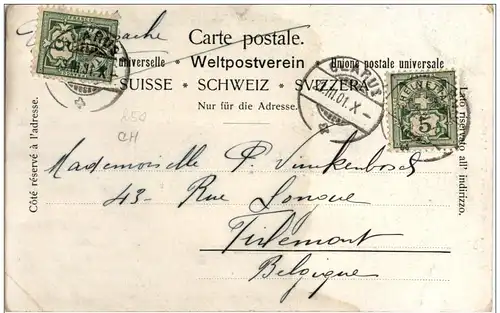 Carte postale.
universelle ✶ Weltpostverein ✶ Unione postale universale
SUISSE ✶ SCHWEIZ ✶ SVIZZERA
Nur für die Adresse.
Côté réservé à l'adresse.
Lato riservato all' indirizzo.
FRANCO
GLARUS
III.01.X-
HELVETIA
5
850
CH
Mademoiselle P. Vinckenbosch
43- Rue Longue
Tirlemont
Belgique